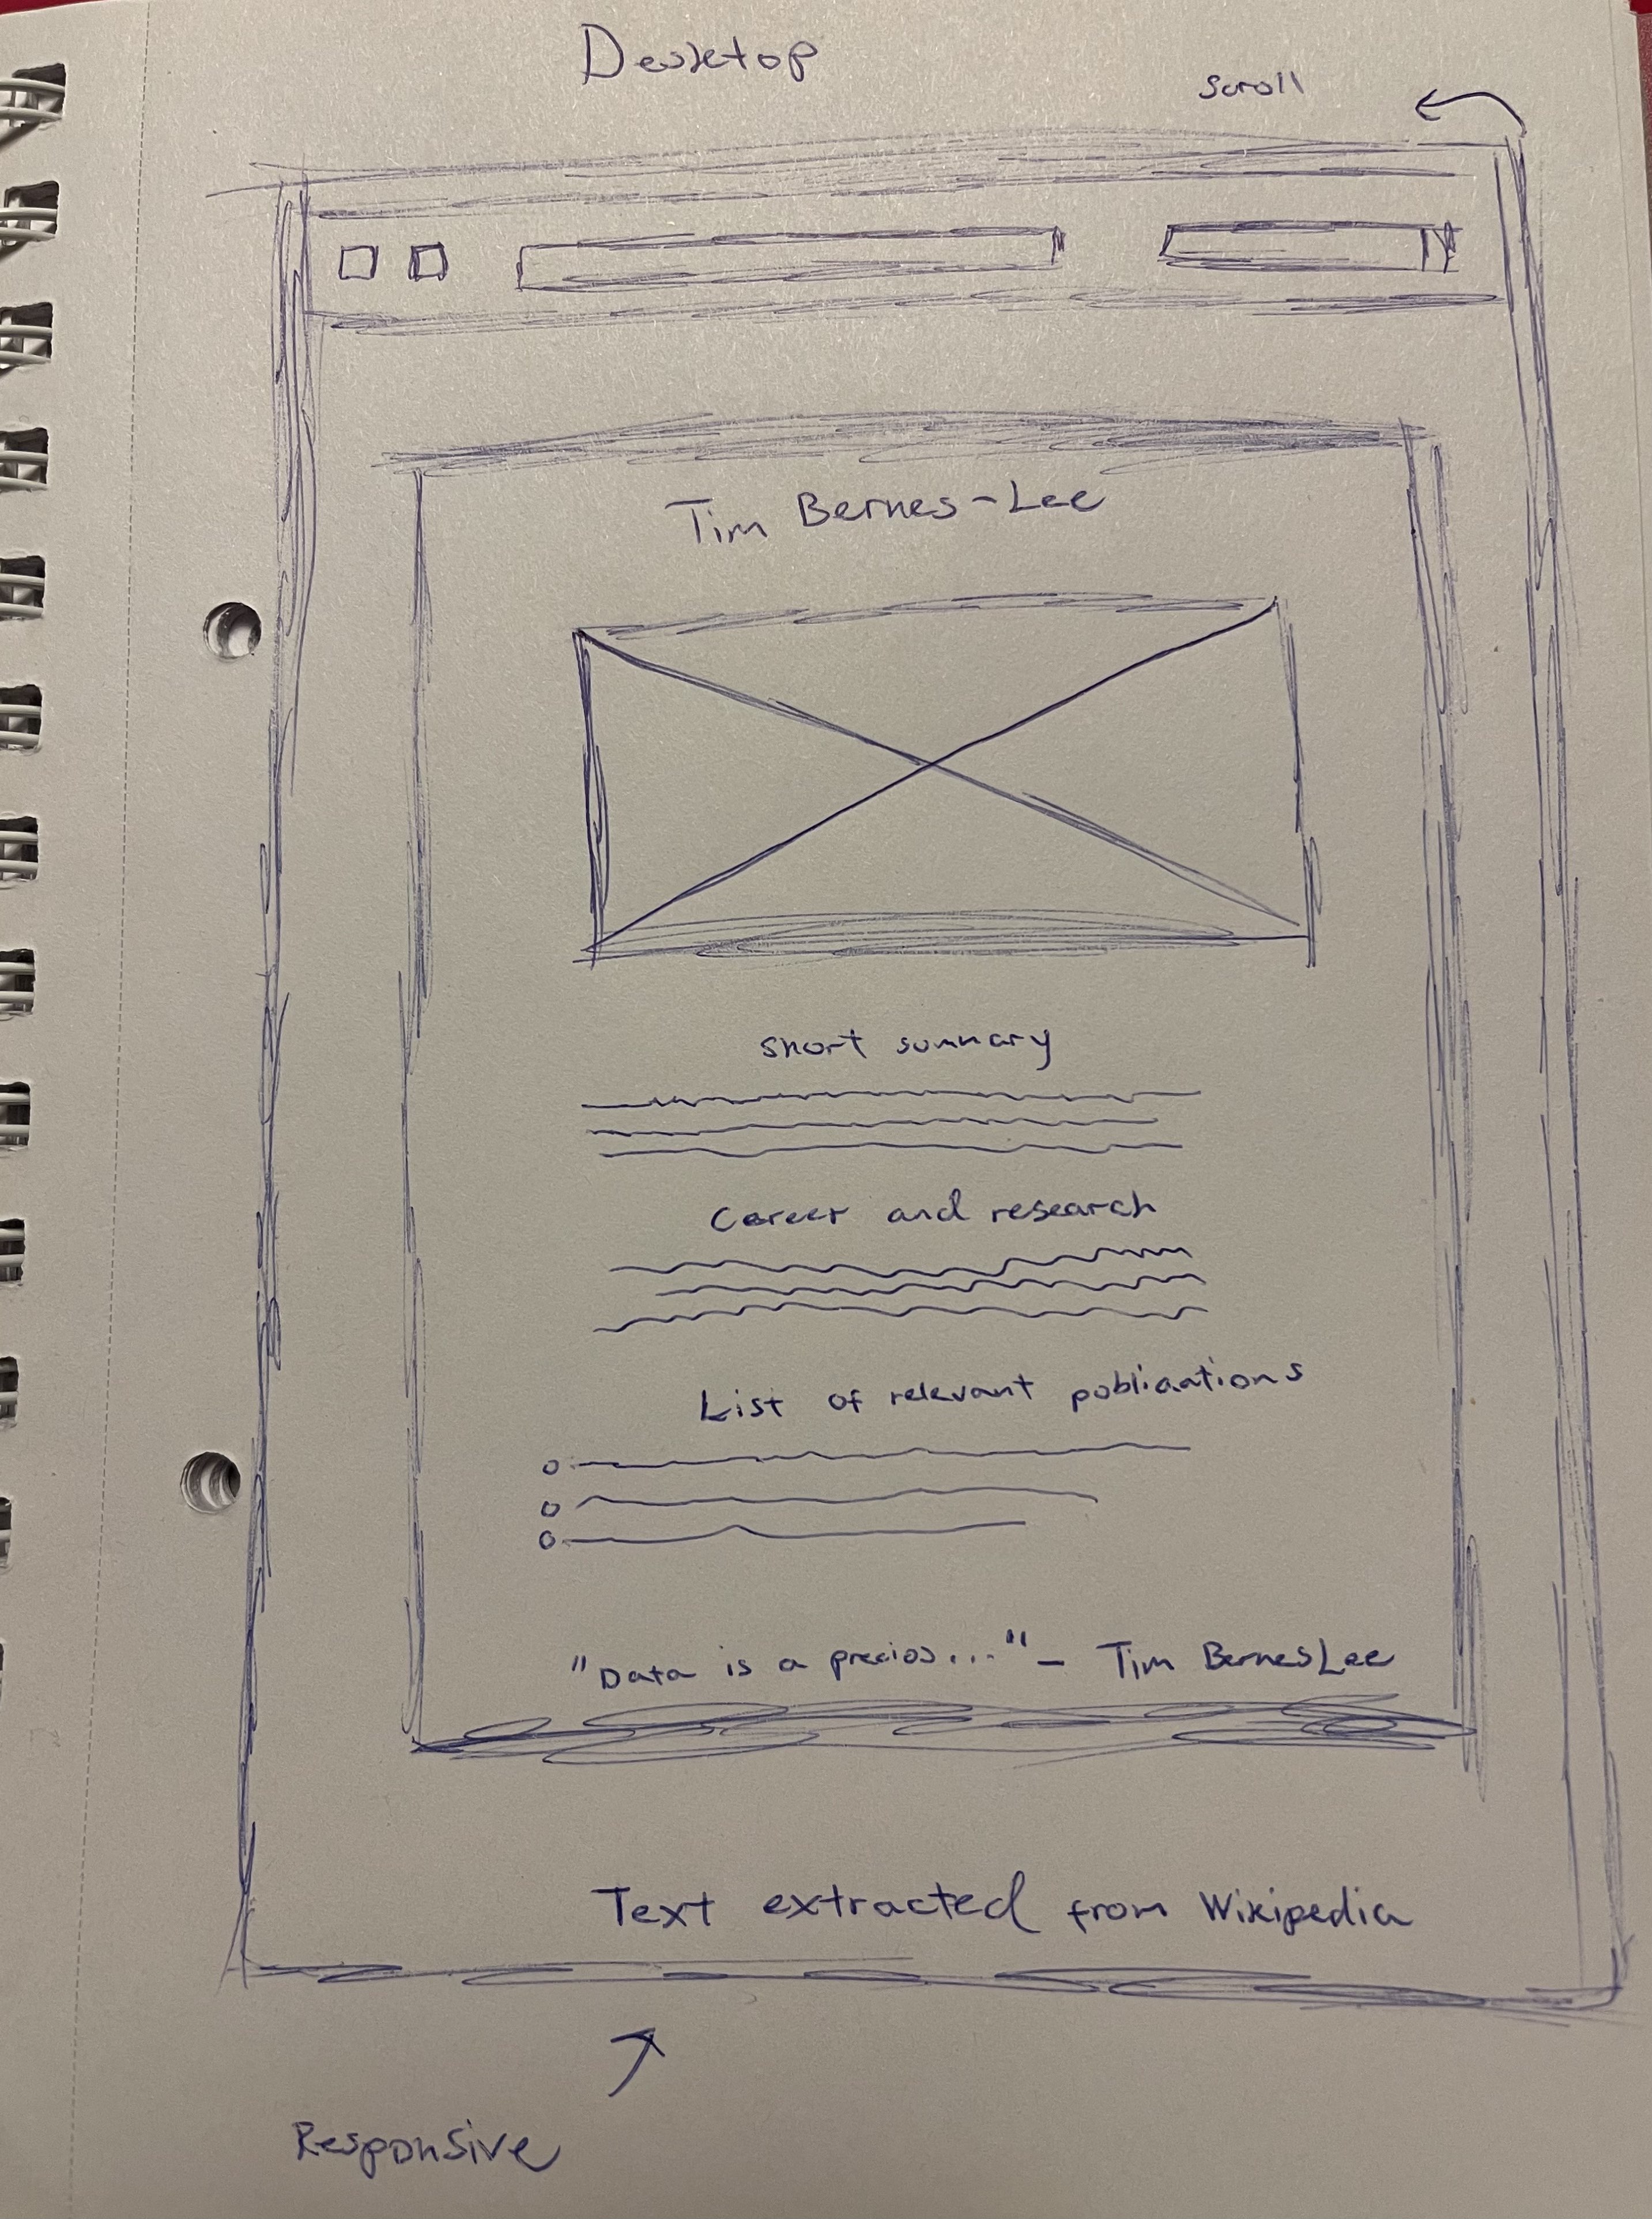 Desktop
scroll
Tim Bernes-Lee
short summary
Career and research
List of relevant poblications
"Data is a precios..." - Tim Bernes Lee
Text extracted from Wikipedia
Responsive